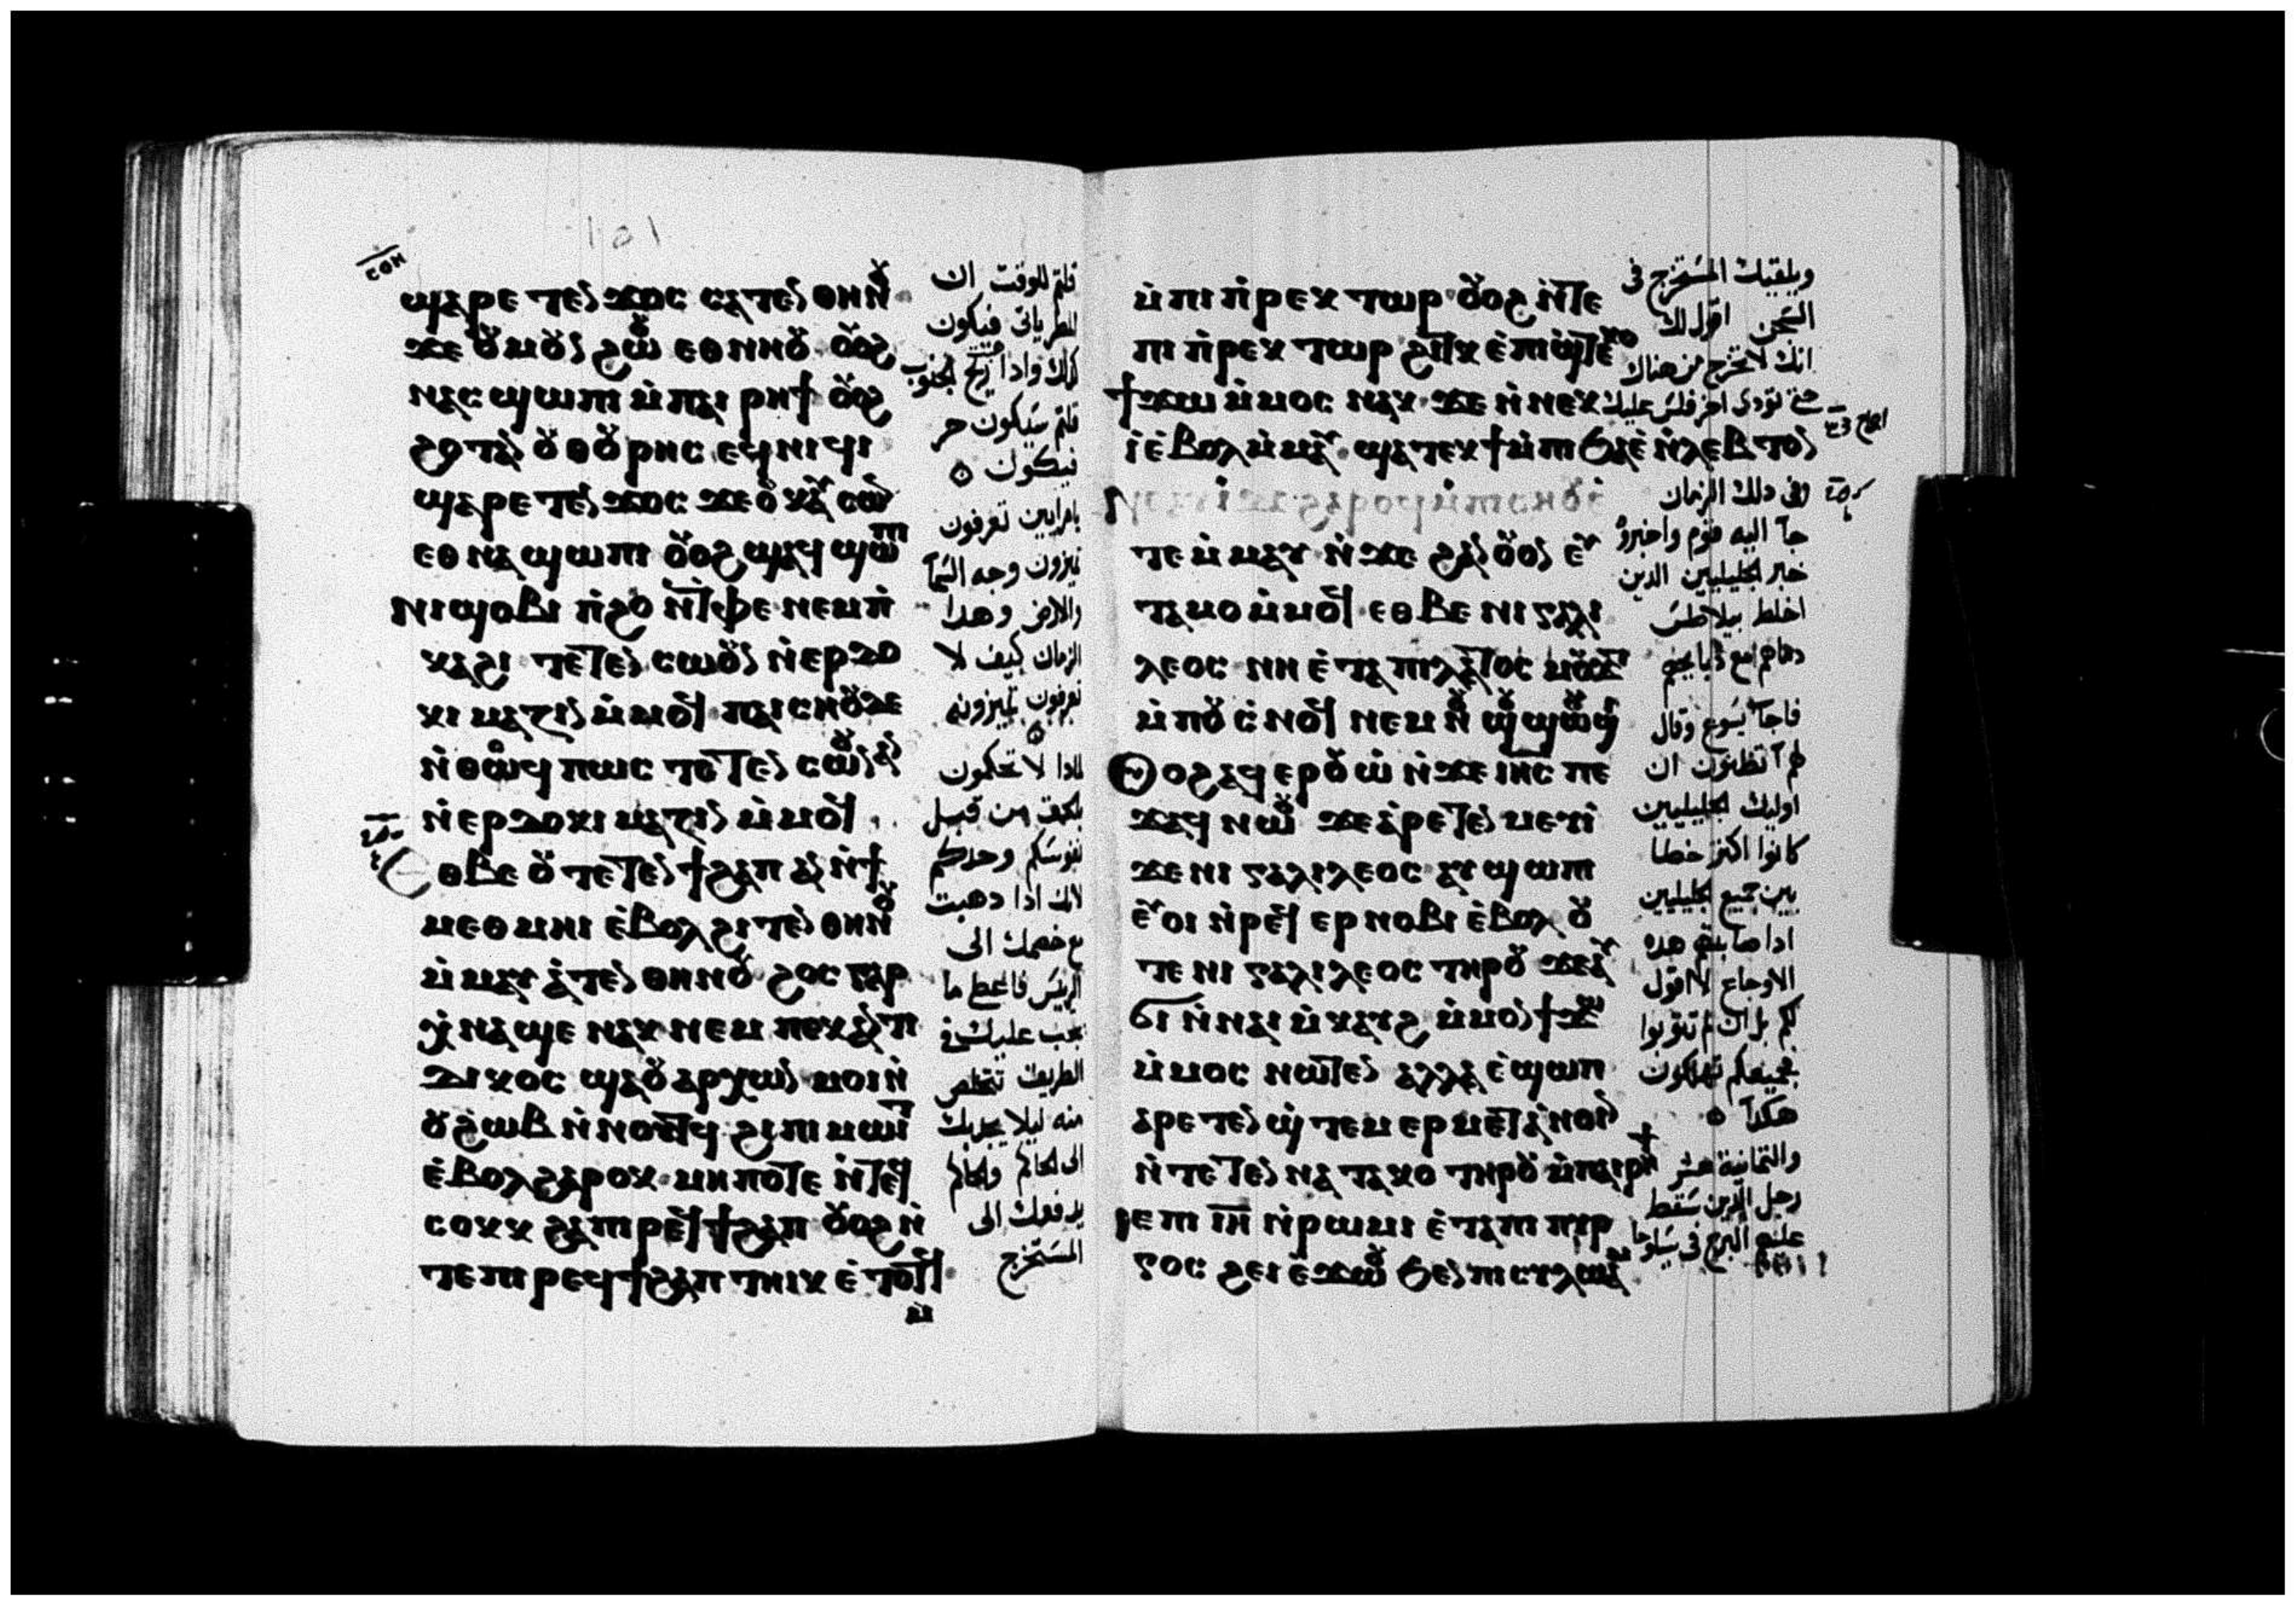 ⲥⲟⲏ
ϣⲁⲣⲉ ⲧⲉⲛ ϫⲟⲥ ⲥⲁⲧⲉⲛ ⲑⲏⲛⲟⲩ
ϫⲉ ⲟⲩⲙⲟⲩⲛ ϩⲱⲟⲩ ⲉⲑⲛⲏⲟⲩ ⲟⲩⲟϩ
ⲛⲁⲥϣⲱⲡⲓ ⲙ̀ⲡⲁⲓ ⲣⲏϯ ⲟⲩⲟϩ
ϩⲟⲧⲁⲛ ⲟⲩⲑⲟⲩⲣⲏⲥ ⲉϥⲛⲓϥⲓ
ϣⲁⲣⲉⲧⲉⲛϫⲟⲥ ϫⲉⲟⲩⲕⲁⲩⲥⲱⲛ
ⲉⲑⲛⲁϣⲱⲡⲓ ⲟⲩⲟϩ ϣⲁϥϣⲱⲡⲓ
ⲛⲓϣⲟⲃⲓ ⲛ̀ϩⲟ ⲛ̀ⲧⲉⲧⲫⲉ ⲛⲉⲙ ⲡ̀
ⲕⲁϩⲓ ⲧⲉⲧⲉⲛ ⲥⲱⲟⲩⲛ ⲛ̀ⲉⲣⲇⲟ
ⲕⲓⲙⲁⲍⲓⲛ ⲙ̀ⲙⲟϥ ⲡⲁⲓⲥⲏⲟⲩ ⲇⲉ
ⲛ̀ⲑⲟϥ ⲡⲱⲥ ⲧⲉⲧⲉⲛ ⲥⲱⲟⲩⲛ ⲁⲛ
ⲛ̀ⲉⲣⲇⲟⲕⲓⲙⲁⲍⲓⲛ ⲙ̀ⲙⲟϥ
ⲉⲑⲃⲉ ⲟⲩ ⲧⲉⲧⲉⲛϯϩⲁⲡ ⲁⲛ ⲛ̀ϯ
ⲙⲉⲑⲙⲏⲓ ⲉ̀ⲃⲟⲗ ϩⲓⲧⲉⲛ ⲑⲏⲛⲟⲩ
ⲙ̀ⲙⲁⲩⲁⲧⲉⲛ ⲑⲏⲛⲟⲩ ϩⲟⲥ ⲅⲁⲣ
ⲭ̀ⲛⲁϣⲉ ⲛⲁⲕ ⲛⲉⲙ ⲡⲉⲕⲁⲛⲧⲓ
ⲇⲓⲕⲟⲥ ϣⲁⲟⲩⲁⲣⲭⲱⲛ ⲙⲟⲓ ⲛ̀
ⲟⲩϩⲱⲃ ⲛ̀ⲛⲟⲧⲉⲛϥ ϩⲓⲡⲓⲙⲱⲓⲧ
ⲉ̀ⲃⲟⲗ ϩⲁⲣⲟⲕ ⲙⲏⲡⲟⲧⲉ ⲛ̀ⲧⲉϥ
ⲥⲟⲕⲕ ϩⲁⲡⲓⲣⲉϥϯϩⲁⲡ ⲟⲩⲟϩ ⲛ̀
ⲧⲉⲡⲓⲣⲉϥϯϩⲁⲡ ⲧⲏⲓⲕ ⲉ̀ⲧⲟⲧϥ
ⲙ̀
قلتم للوقت ان
المطر ياتى فيكون
كذلك واذا ريح الجنوب
قلتم سيكون حر
فيكون
يامرايين تعرفون
تميزون وجه السما
والارض وهدا
الزمان كيف لا
تعرفون تميزونه
لمادا لا تحكمون
بالحق من قبل
نفوسكم وحدكم
لانك اذا دهبت
مع خصمك الى
الريس فاعط ما
يجب عليك فى
الطريق تتخلص
منه ليلا يجدبك
الى الحاكم والحاكم
يدفعك الى
المستخرج
ⲙ̀ⲡⲓⲡ̀ⲣⲉⲕⲧⲱⲣ ⲟⲩⲟϩ ⲛ̀ⲧⲉ
ⲡⲓⲡ̀ⲣⲉⲕⲧⲱⲣ ϩⲓⲧⲕ ⲉ̀ⲡⲓϣⲧⲉⲕⲟ
ϯϫⲱ ⲙ̀ⲙⲟⲥ ⲛⲁⲕ ϫⲉ ⲛ̀ⲛⲉⲕ
ⲓ̀ ⲉ̀ⲃⲟⲗ ⲙ̀ⲙⲁⲩ ϣⲁⲧⲉⲕϯ ⲙ̀ⲡⲓϧⲁⲉ̀ ⲛ̀ⲗⲉⲃⲧⲟⲛ
ⲧⲉ ⲙ̀ⲙⲁⲩ ⲛ̀ϫⲉ ϩⲁⲛⲟⲩⲟⲛ ⲉⲩ
ⲧⲁⲙⲟ ⲙ̀ⲙⲟϥ ⲉⲑⲃⲉ ⲛⲓⲅⲁⲗⲓ
ⲗⲉⲟⲥ ⲛⲏ ⲉ̀ⲧⲁ ⲡⲓⲗⲁⲧⲟⲥ ⲙⲟⲩϫⲧ
ⲙ̀ⲡⲟⲩⲥ̀ⲛⲟϥ ⲛⲉⲙ ⲛⲟⲩϣⲟⲩϣⲱⲟⲩϣⲓ
ⲟⲩⲟϩ ⲁϥⲉⲣⲟⲩⲱ̀ ⲛ̀ϫⲉ ⲓⲏⲥ ⲡⲉ
ϫⲁϥ ⲛⲱⲟⲩ ϫⲉ ⲁ̀ⲣⲉⲧⲉⲛ ⲙⲉⲩⲓ
ϫⲉ ⲛⲓⲅⲁⲗⲓⲗⲉⲟⲥ ⲁⲩϣⲱⲡⲓ
ⲉⲩⲟⲓ ⲛ̀ⲣⲉϥⲉⲣⲛⲟⲃⲓ ⲉ̀ⲃⲟⲗ ⲟⲩ
ⲧⲉ ⲛⲓⲅⲁⲗⲓⲗⲉⲟⲥ ⲧⲏⲣⲟⲩ ϫⲉ ⲁⲩ
ϭⲓ ⲛ̀ⲛⲁⲓ ⲙ̀ⲕⲁⲩϩ ⲙ̀ⲙⲟⲛ ϯϫⲱ
ⲙ̀ⲙⲟⲥ ⲛⲱⲧⲉⲛ ⲁⲗⲗⲁ ⲉ̀ϣⲱⲡ
ⲁⲣⲉⲧⲉⲛϣ̀ⲧⲉⲙⲉⲣⲙⲉⲧⲁ̀ⲛⲟⲓⲛ
ⲛ̀ⲧⲉⲧⲉⲛⲛⲁⲧⲁⲕⲟ ⲧⲏⲣⲟⲩ ⲙ̀ⲡⲁⲓⲣⲏϯ
ⲓⲉ ⲡⲓ ⲓⲏ ⲛ̀ⲣⲱⲙⲓ ⲉ̀ⲧⲁⲡⲓ ⲡⲓⲣ
ⲅⲟⲥ ϩⲉⲓ ⲉ̀ϫⲱⲟⲩ ϧⲉⲛ ⲡⲓⲥⲩⲗⲱⲁⲙ
ويلقيك المستخرج فى
السجن اقول لك
انك لا تخرج من هناك
حتى تؤدى اخر فلس عليك
وفى دلك الزمان
جآ اليه قوم واخبروه
خبر الجليليين الدين
اخلط بيلاطس
دماهم مع دبايحهم
فاجآب يسوع وقال
لهم آتظنون ان
اوليك الجليليين
كانوا اكثر خطا
من جميع الجليليين
ادا صابتهم هده
الاوجاع لا اقول
لكم بل ان لم تتوبوا
فجميعكم تهلكون
هكدآ
والثمانية عشر
رجل الدين سقط
عليهم البرج فى سيلوحا